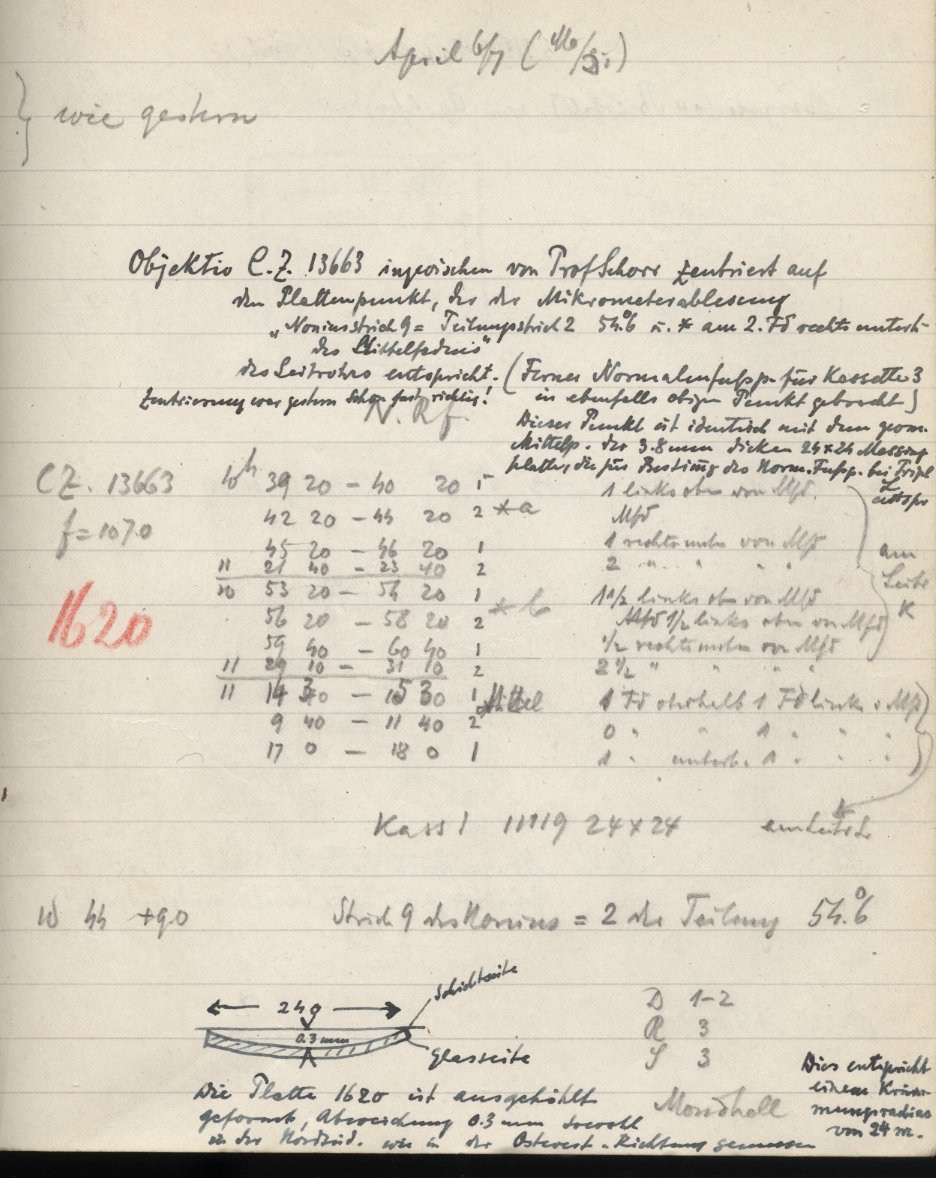 April 6/7 (Mo/Di)
} wie gestern
Objektiv C.Z. 13663 inzwischen von Prof Schorr zentriert auf
den Plattenpunkt, der der Mikrometerablesung
"Noniusstrich 9 = Teilungsstrich 2 54.°6 u. * am 2. Fd rechts unterh.
des Mittelfadens"
des Leitrohrs entspricht. (Ferner Normalenfussp. für Kassette 3
in ebenfalls obigen Punkt gebracht)
Zentrierung war gestern schon fast richtig!
N. Rf.
Dieser Punkt ist identisch mit dem geom.
Mittelp. der 3.8 mm dicken 24x24 Messing
platte, die für Bestimg des Norm. Fussp. bei Tripl
CZ. 13663 10h 39 20 – 40 20 1 1 links oben von Mfd
f=1070 42 20 – 44 20 2 *a Mfd
45 20 – 46 20 1 1 rechts unten von Mfd
11 21 40 – 23 40 2 2 " " " "
am Leitr K
10 53 20 – 54 20 1 1 1/2 links oben von Mfd
1620
56 20 – 58 20 2 *b 1/2 links oben von Mfd
59 40 – 60 40 1 1/2 rechts unten von Mfd
11 29 10 – 31 10 2 2 1/2 " " " "
11 14 30 – 15 30 1 *Mittel 1 Fd oberhalb 1 Fd links v Mfd
9 40 – 11 40 2 0 " " 1 " " "
17 0 – 18 0 1 1 " unterh. 1 " " "
Kass 1 11119 24x24 am Leitr L
10 44 +90 Strich 9 des Nonius = 2 der Teilung 54.°6
Schichtseite
← 24 → 
0.3 mm
Glasseite
D 1-2
R 3
S 3
Mondhell
Dies entspricht
einem Krüm-
mungsradius
von 24 m.
Die Platte 1620 ist ausgehöhlt
geformt, Abweichung 0.3 mm sowohl
in der Nordsüd. wie in der Ostwest-Richtung gemessen